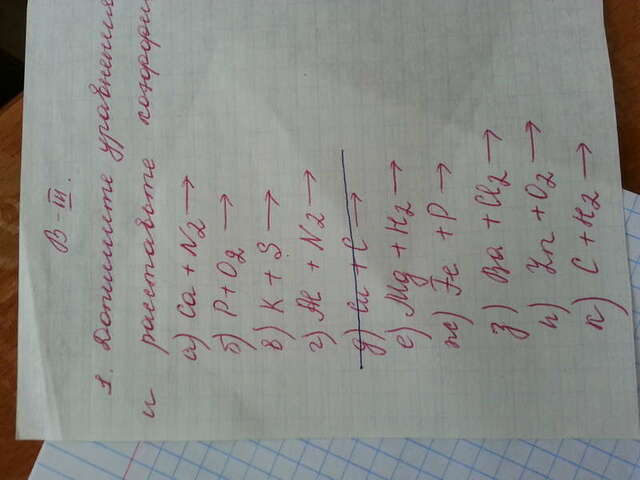 В-III.
1. Допишите уравнения
и расставьте коэффи
а) Ca + N2 →
б) P + O2 →
в) K + S →
г) Al + N2 →
д) Cu + C →
е) Mg + H2 →
ж) Fe + P →
з) Ba + Cl2 →
и) Zn + O2 →
к) C + H2 →